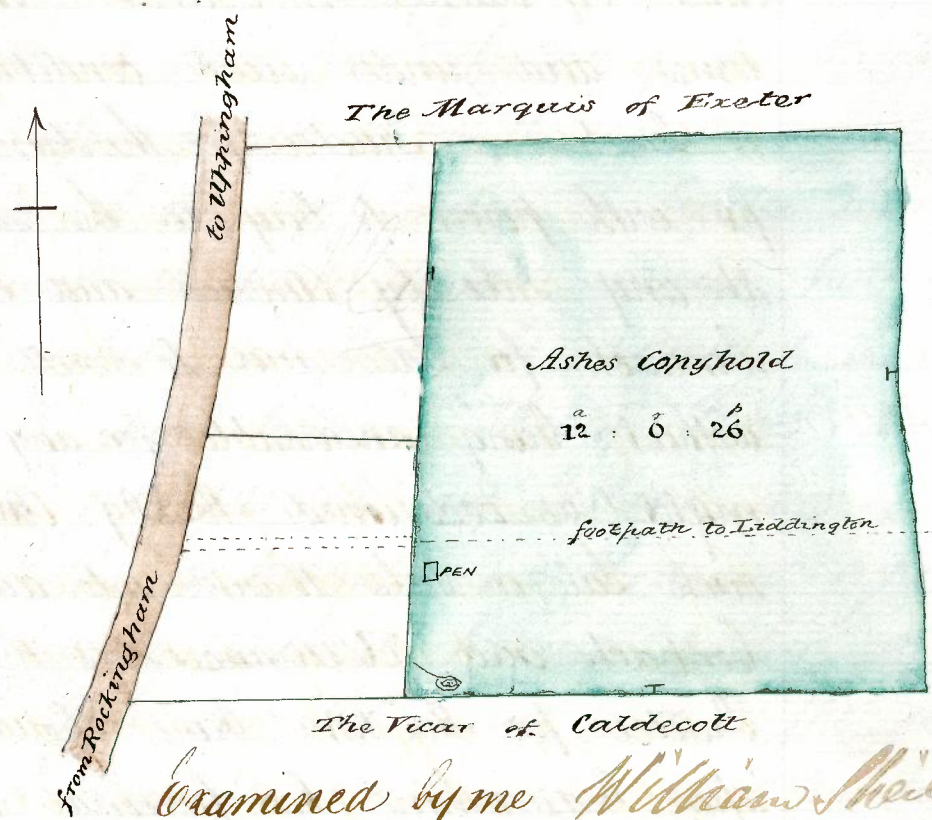 to Uppingham
The Marquis of Exeter
Ashes Copyhold
a r p
12 : 0 : 26
footpath to Liddington
PEN
from Rockingham
The Vicar of Caldecott
Examined by me William